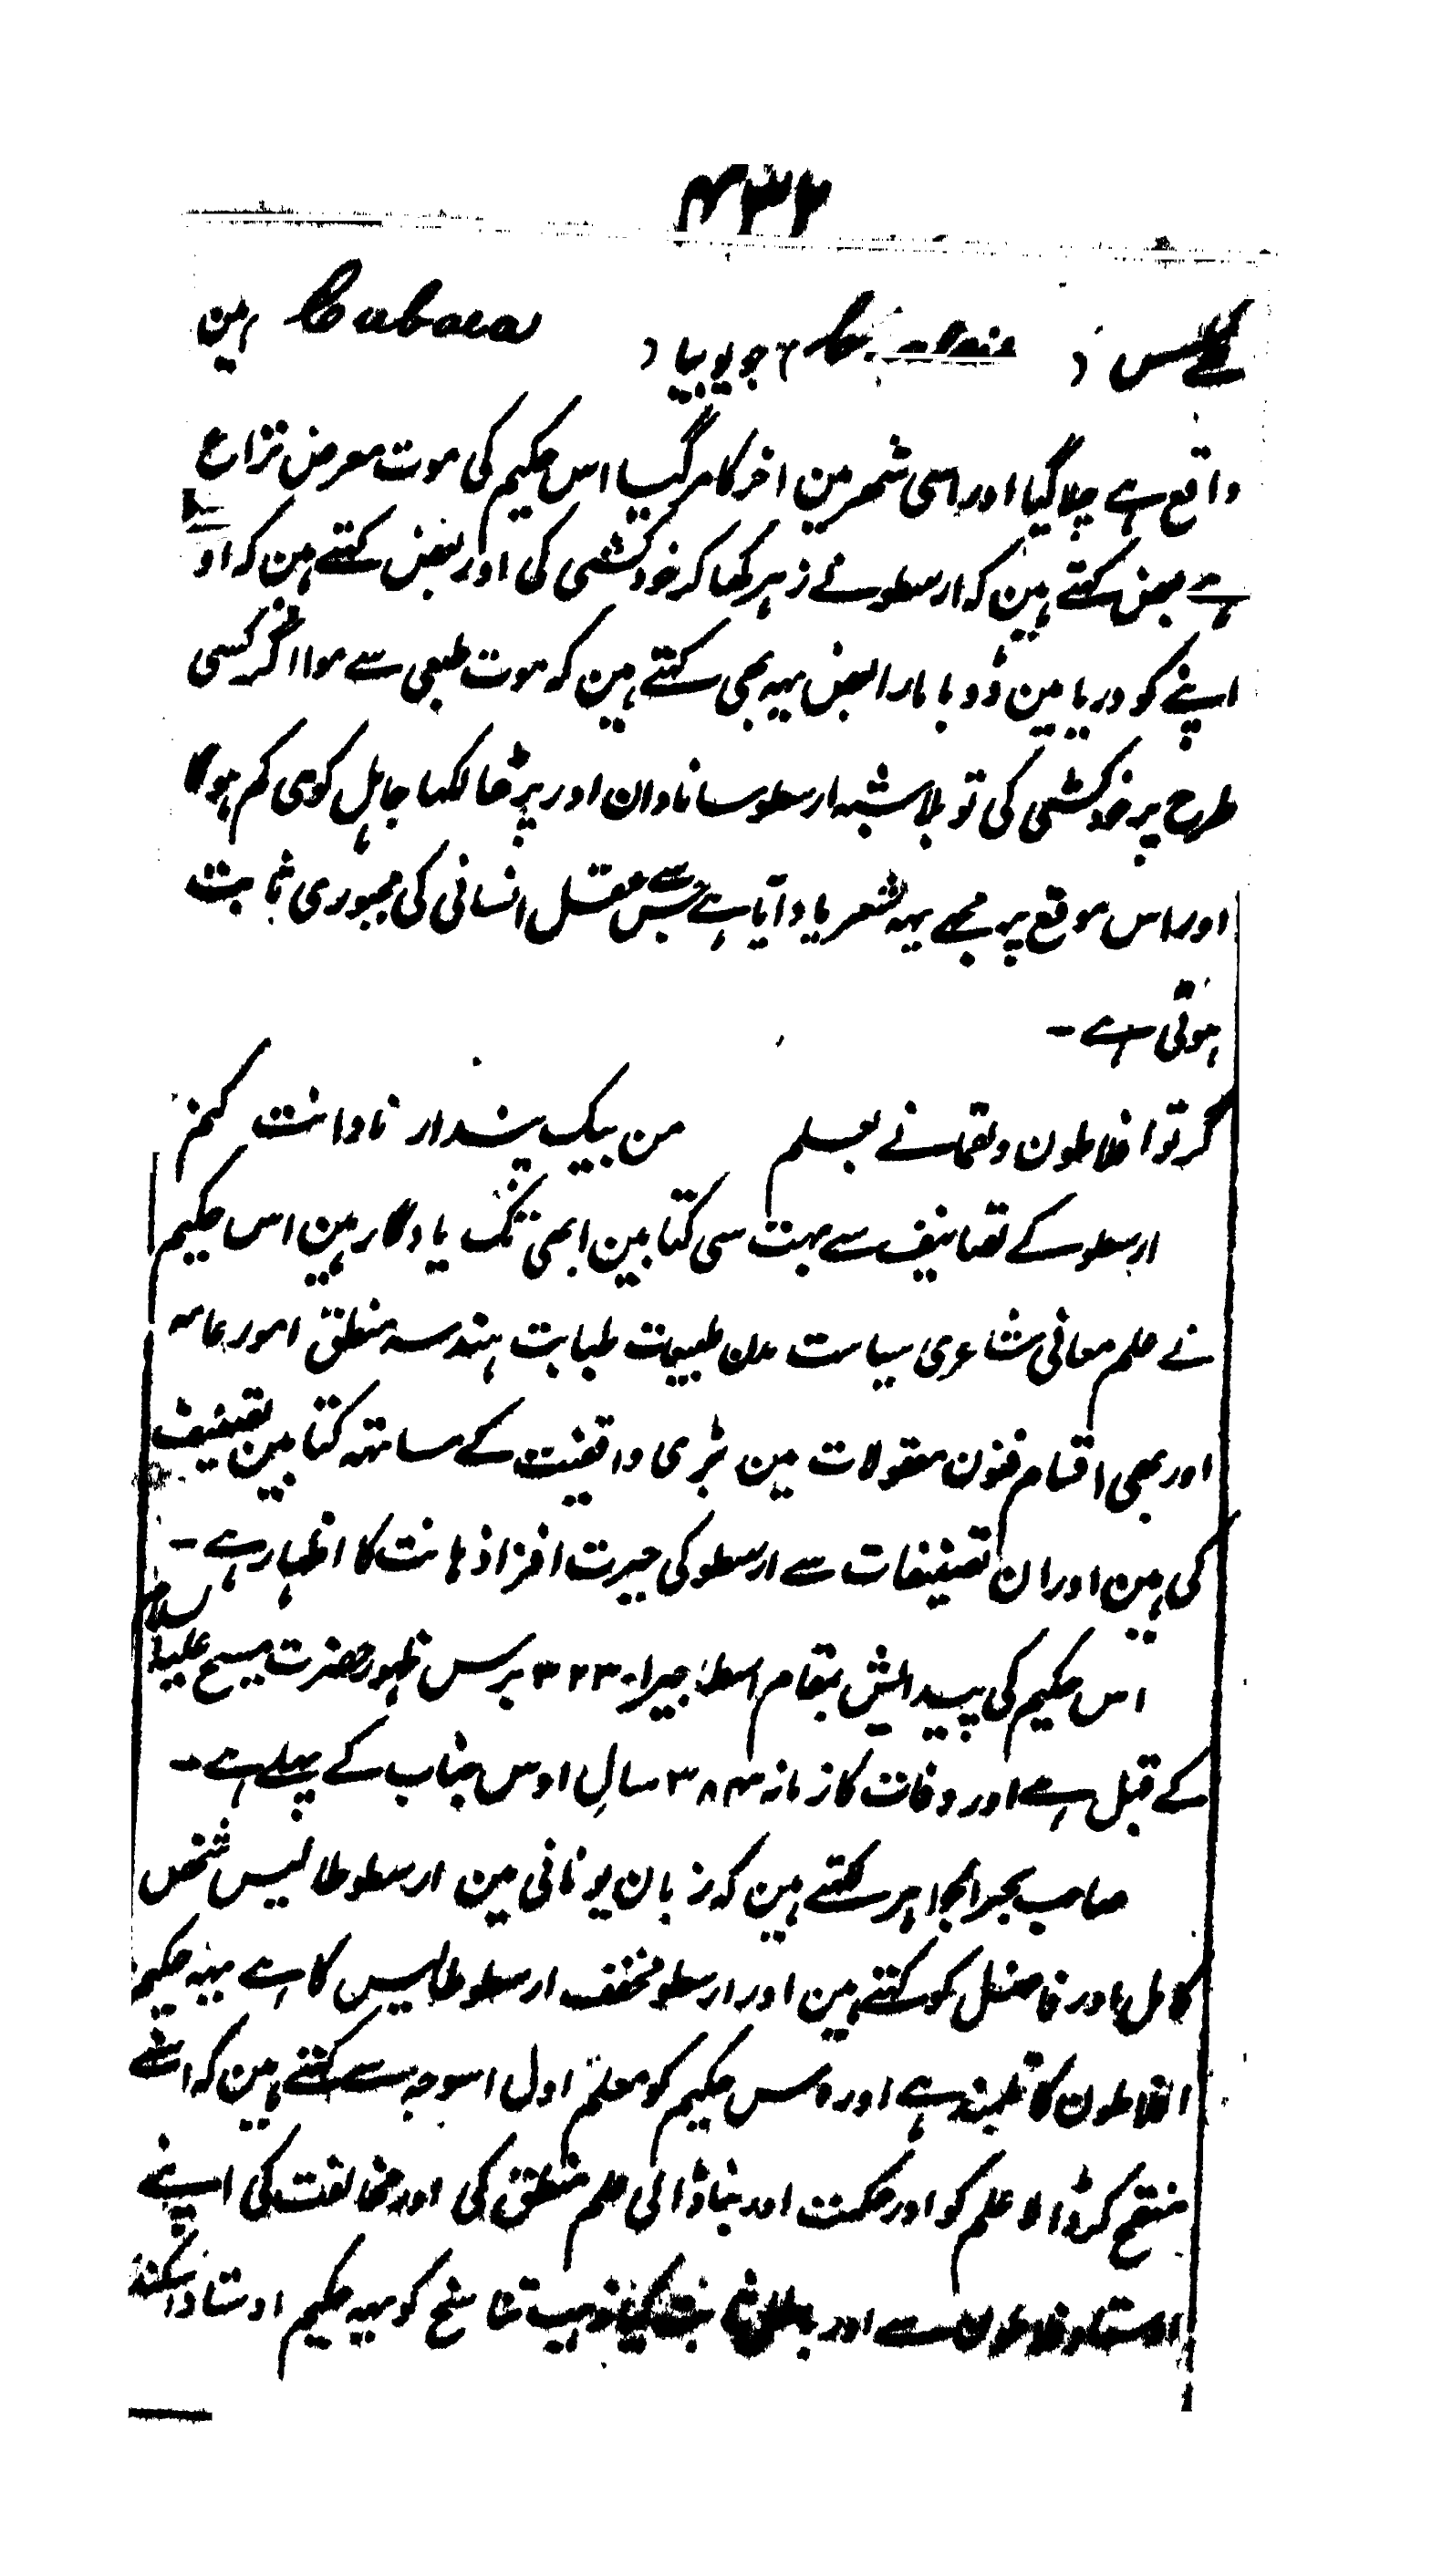 ۴۳۲
کلس ( ) جو یوبیا ( Cubaea مین
واقع ہے چلا گیا اور اسی شہر مین اخر کار مر گیا اس حکیم کی موت معرض نزاع
ہے بعض کہتے ہین کہ ارسطو نے زہر کھا کر خودکشی کی اور بعض کہتے ہین کہ او
اپنے کو دریا مین ڈوبا مارا بعض یہہ بھی کہتے ہین کہ موت طبعی سے موا اگر کسی
طرح پر خودکشی کی تو بلاشبہہ ارسطو سا نادان اور پڑھا لکھا جاہل کوی کم ہوگا
اور اس موقع پر مجھے یہہ شعر یاد آیا ہے جس سے عقل انسانی کی مجبوری ثابت
ہوتی ہے ۔
گر تو افلاطون و لقمانے بعلم من بیک پندار نادانت کنم
ارسطو کے تصانیف سے بہت سی کتابین ابھی تک یادگار ہین اس حکیم
نے علم معانی شاعری سیاست مدن طبیعات طبابت ہندسہ منطق امور عامہ
اور بھی اقسام فنون معقولات مین بڑی واقفیت کے ساتھہ کتابین تصنیف
کی ہین اور ان تصنیفات سے ارسطو کی حیرت افزا ذہانت کا اظہار ہے ۔
اس حکیم کی پیدایش بمقام اسطاجیرا ۳۲۳ برس ظہور حضرت مسیح علیہ السلام
کے قبل ہے اور وفات کا زمانہ ۳۸۴ سال اوس جناب کے پہلے ہے ۔
صاحب بحر الجواہر کہتے ہین کہ زبان یونانی مین ارسطوطالیس شخص
کامل اور فاضل کو کہتے ہین اور ارسطو مخفف ارسطوطالیس کا ہے یہہ حکیم
افلاطون کا تلمیذ ہے اور اس حکیم کو معلم اول اسوجہ سے کہتے ہین کہ اسنے
منقح کر ڈالا علم کو اور حکمت اور بنا ڈالی علم منطق کی اور مخالفت کی اپنے
اوستاد افلاطون سے اور باطل ثابت کیا مذہب تناسخ کو یہہ حکیم اوستاد اسکندر